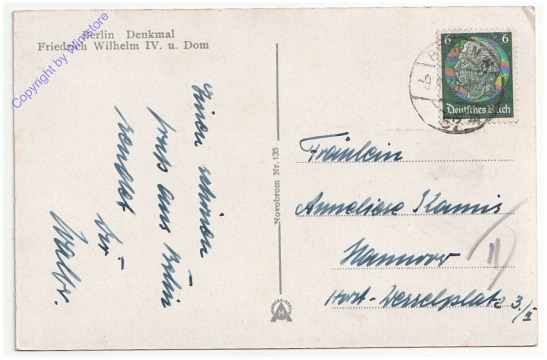 Berlin Denkmal
Friedrich Wilhelm IV. u. Dom
Copyright by Winestore
Einen schönen
aus Berlin
sendet
Novobrom Nr. 135
6 6
Deutsches Reich
Fräulein
Anneliese Kamis
Hannover
Horst-Wesselplatz 3./II